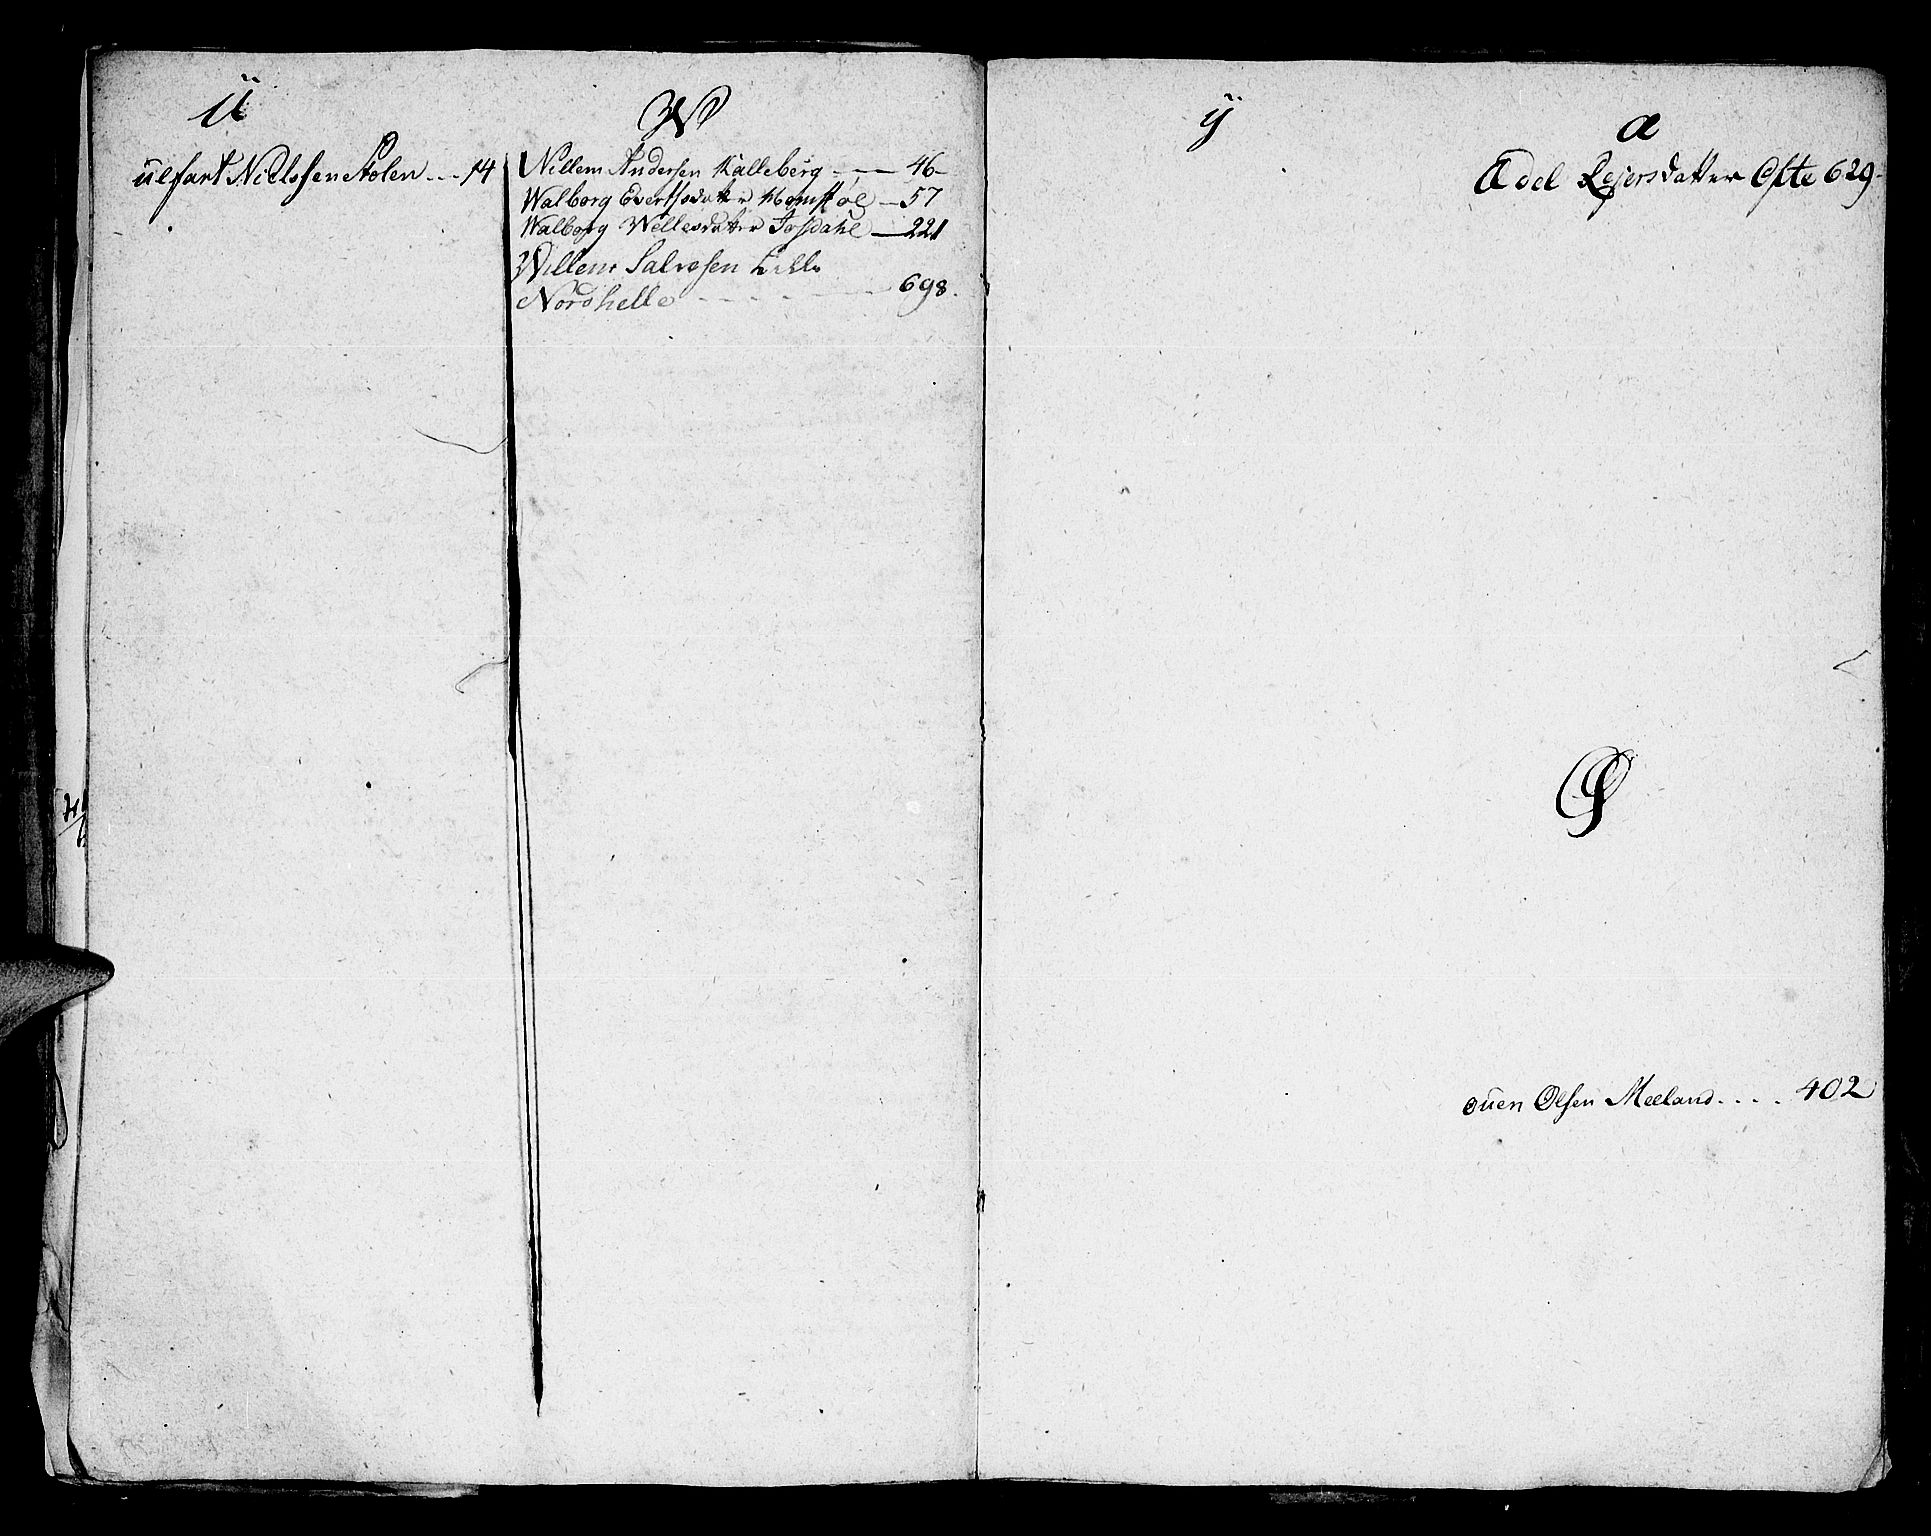 Ü
Ülfart Nielssen Stolen --- 14
W
Willem Andersen Kalleberg --- 46
Walborg Evertsdatter Homstøl - 57
Walborg Wellesdatter Josdahl - 221
Willem Salvesen Lille
Nordhelle - - - - - 698.
ÿ
Æ
Adel Rejersdatter Ofte 629
Ø
Øuen Olsen Mæland.... 402